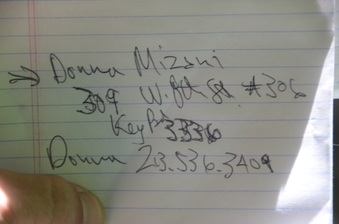 Donna Mizani
309 W. 8th St #306
Key
Donna 213.536.3409